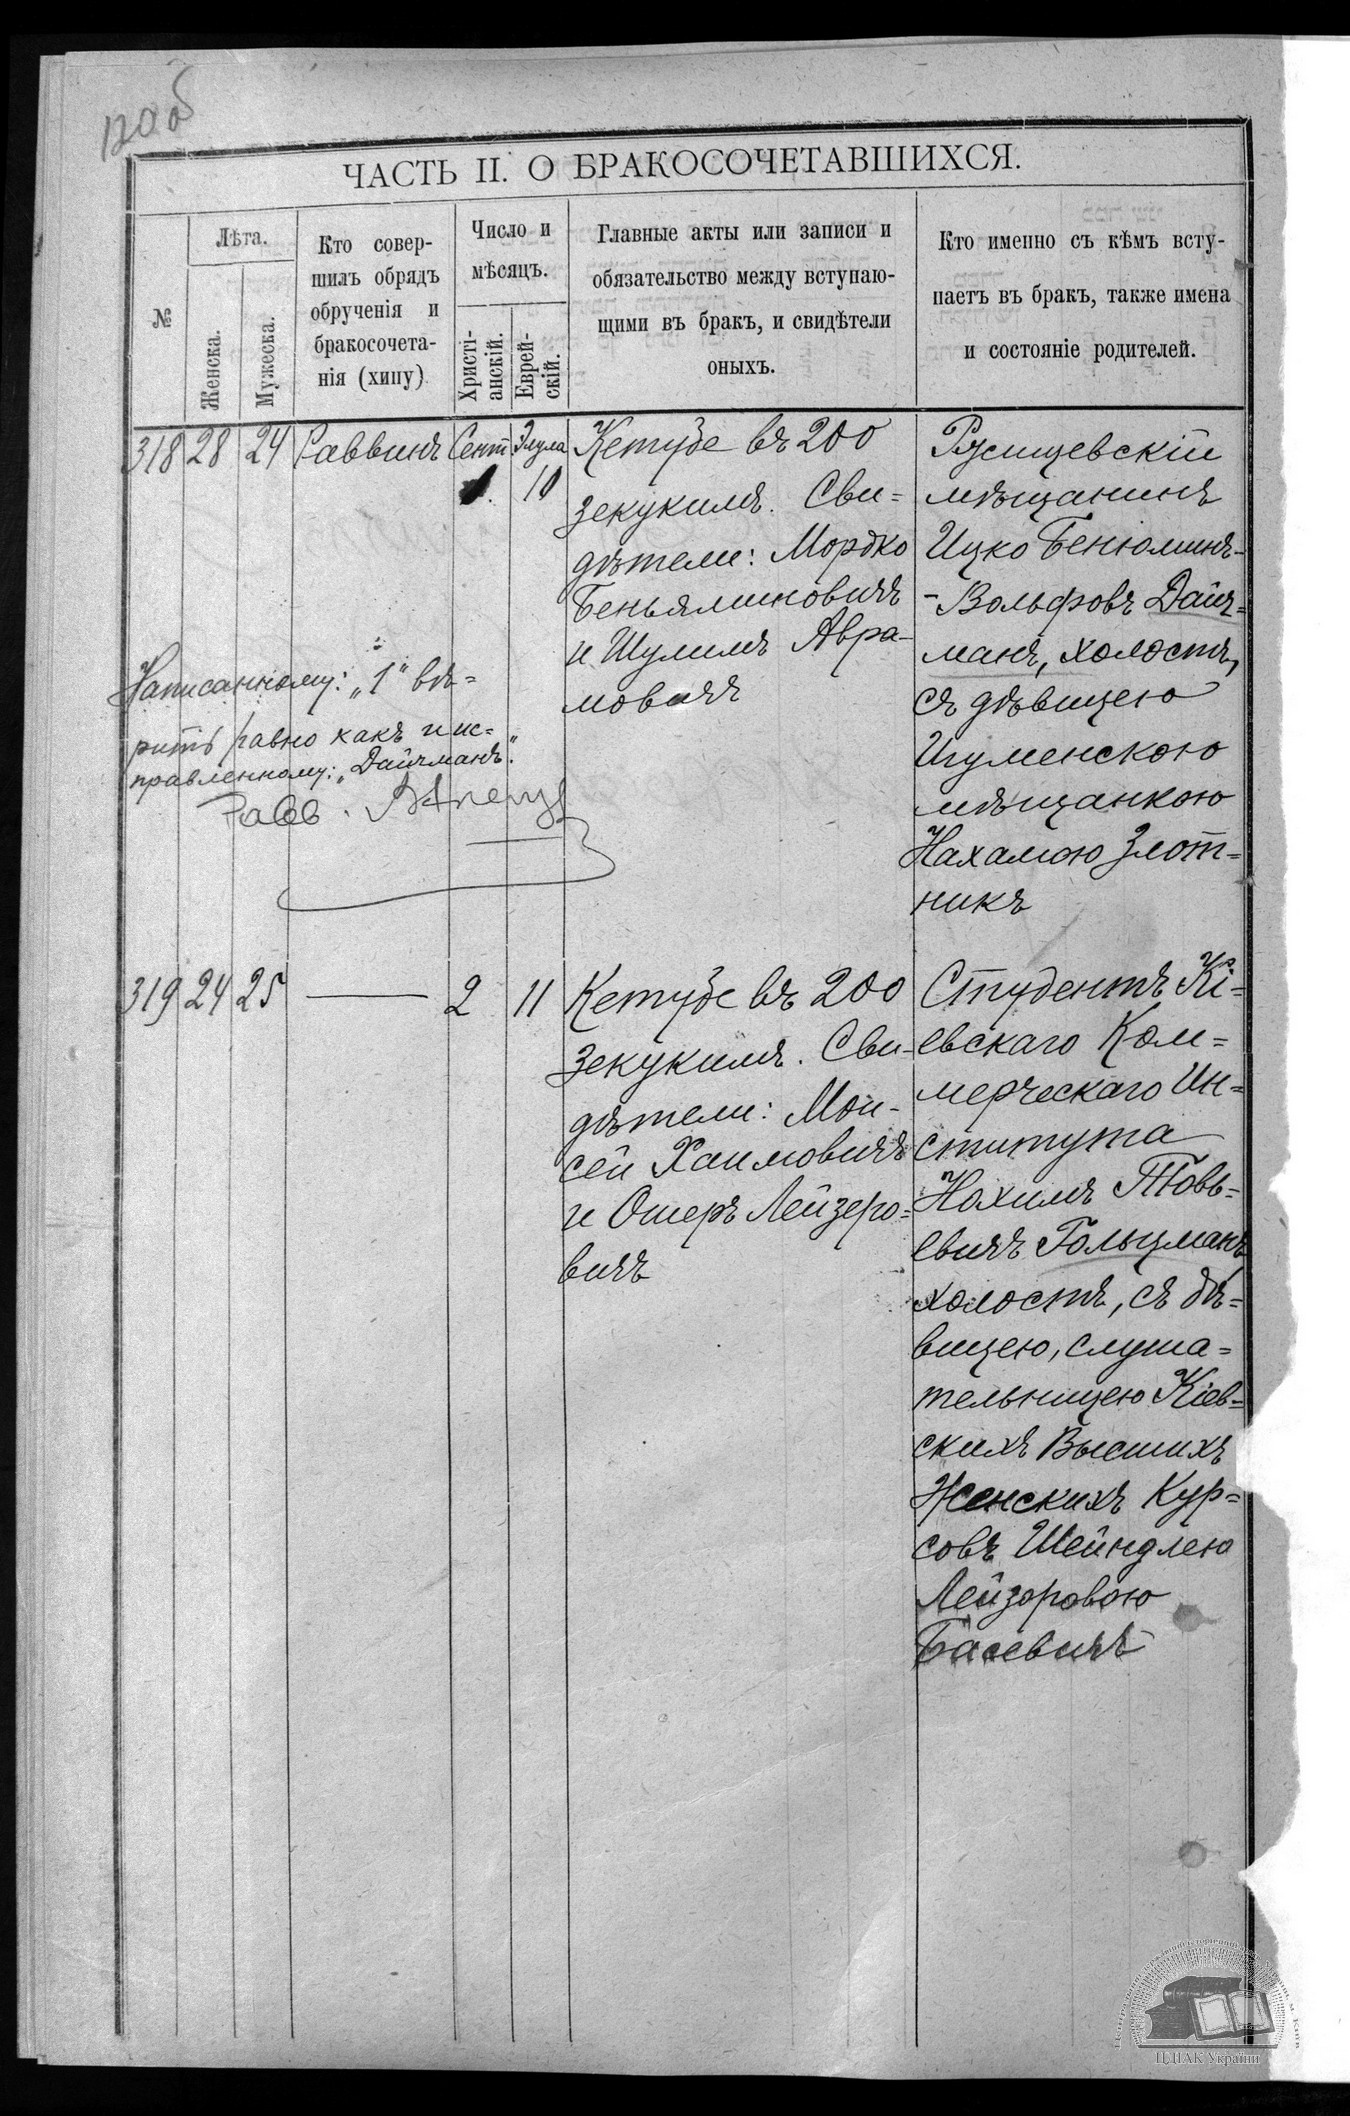 120 об
ЧАСТЬ II. О БРАКОСОЧЕТАВШИХСЯ.
№
Лѣта.
Женска.
Мужеска.
Кто совер-
шилъ обрядъ
обрученія и
бракосочета-
нія (хипу)
Число и
мѣсяцъ.
Христі-
анскій.
Еврей-
скій.
Главные акты или записи и
обязательство между вступаю-
щими въ бракъ, и свидѣтели
оныхъ.
Кто именно съ кѣмъ всту-
паетъ въ бракъ, также имена
и состояніе родителей.
318 28 24 Раввинъ Сент 1. Элула 10
Кетубе въ 200
зекукимъ. Сви=
дѣтели: Мордко
Беньяминовичъ
и Шулимъ Авра-
мовичъ
Русицевскій
мѣщанинъ
Ицко Бенюминъ-
-Вольфовъ Дайч=
манъ, холостъ,
съ дѣвицею
Игуменскою
мѣщанкою
Нахамою Злот=
никъ
Написанному: „1" вѣ=
рить равно какъ и ис=
правленному: „Дайчманъ".
Равв.
319 24 25 — 2 11
Кетубе въ 200
зекукимъ. Сви-
дѣтели: Мои-
сей Хаимовичъ
и Ошеръ Лейзеро=
вичъ
Студентъ Кі=
евскаго Ком=
мерческаго Ин=
ститута
Нохимъ Товь=
евичъ Гольцманъ,
холостъ, съ дѣ=
вицею, слуша=
тельницею Кіев=
скихъ Высшихъ
Женскихъ Кур=
совъ Шейндлею
Лейзоровою
Басевичъ
ЦДІАК України